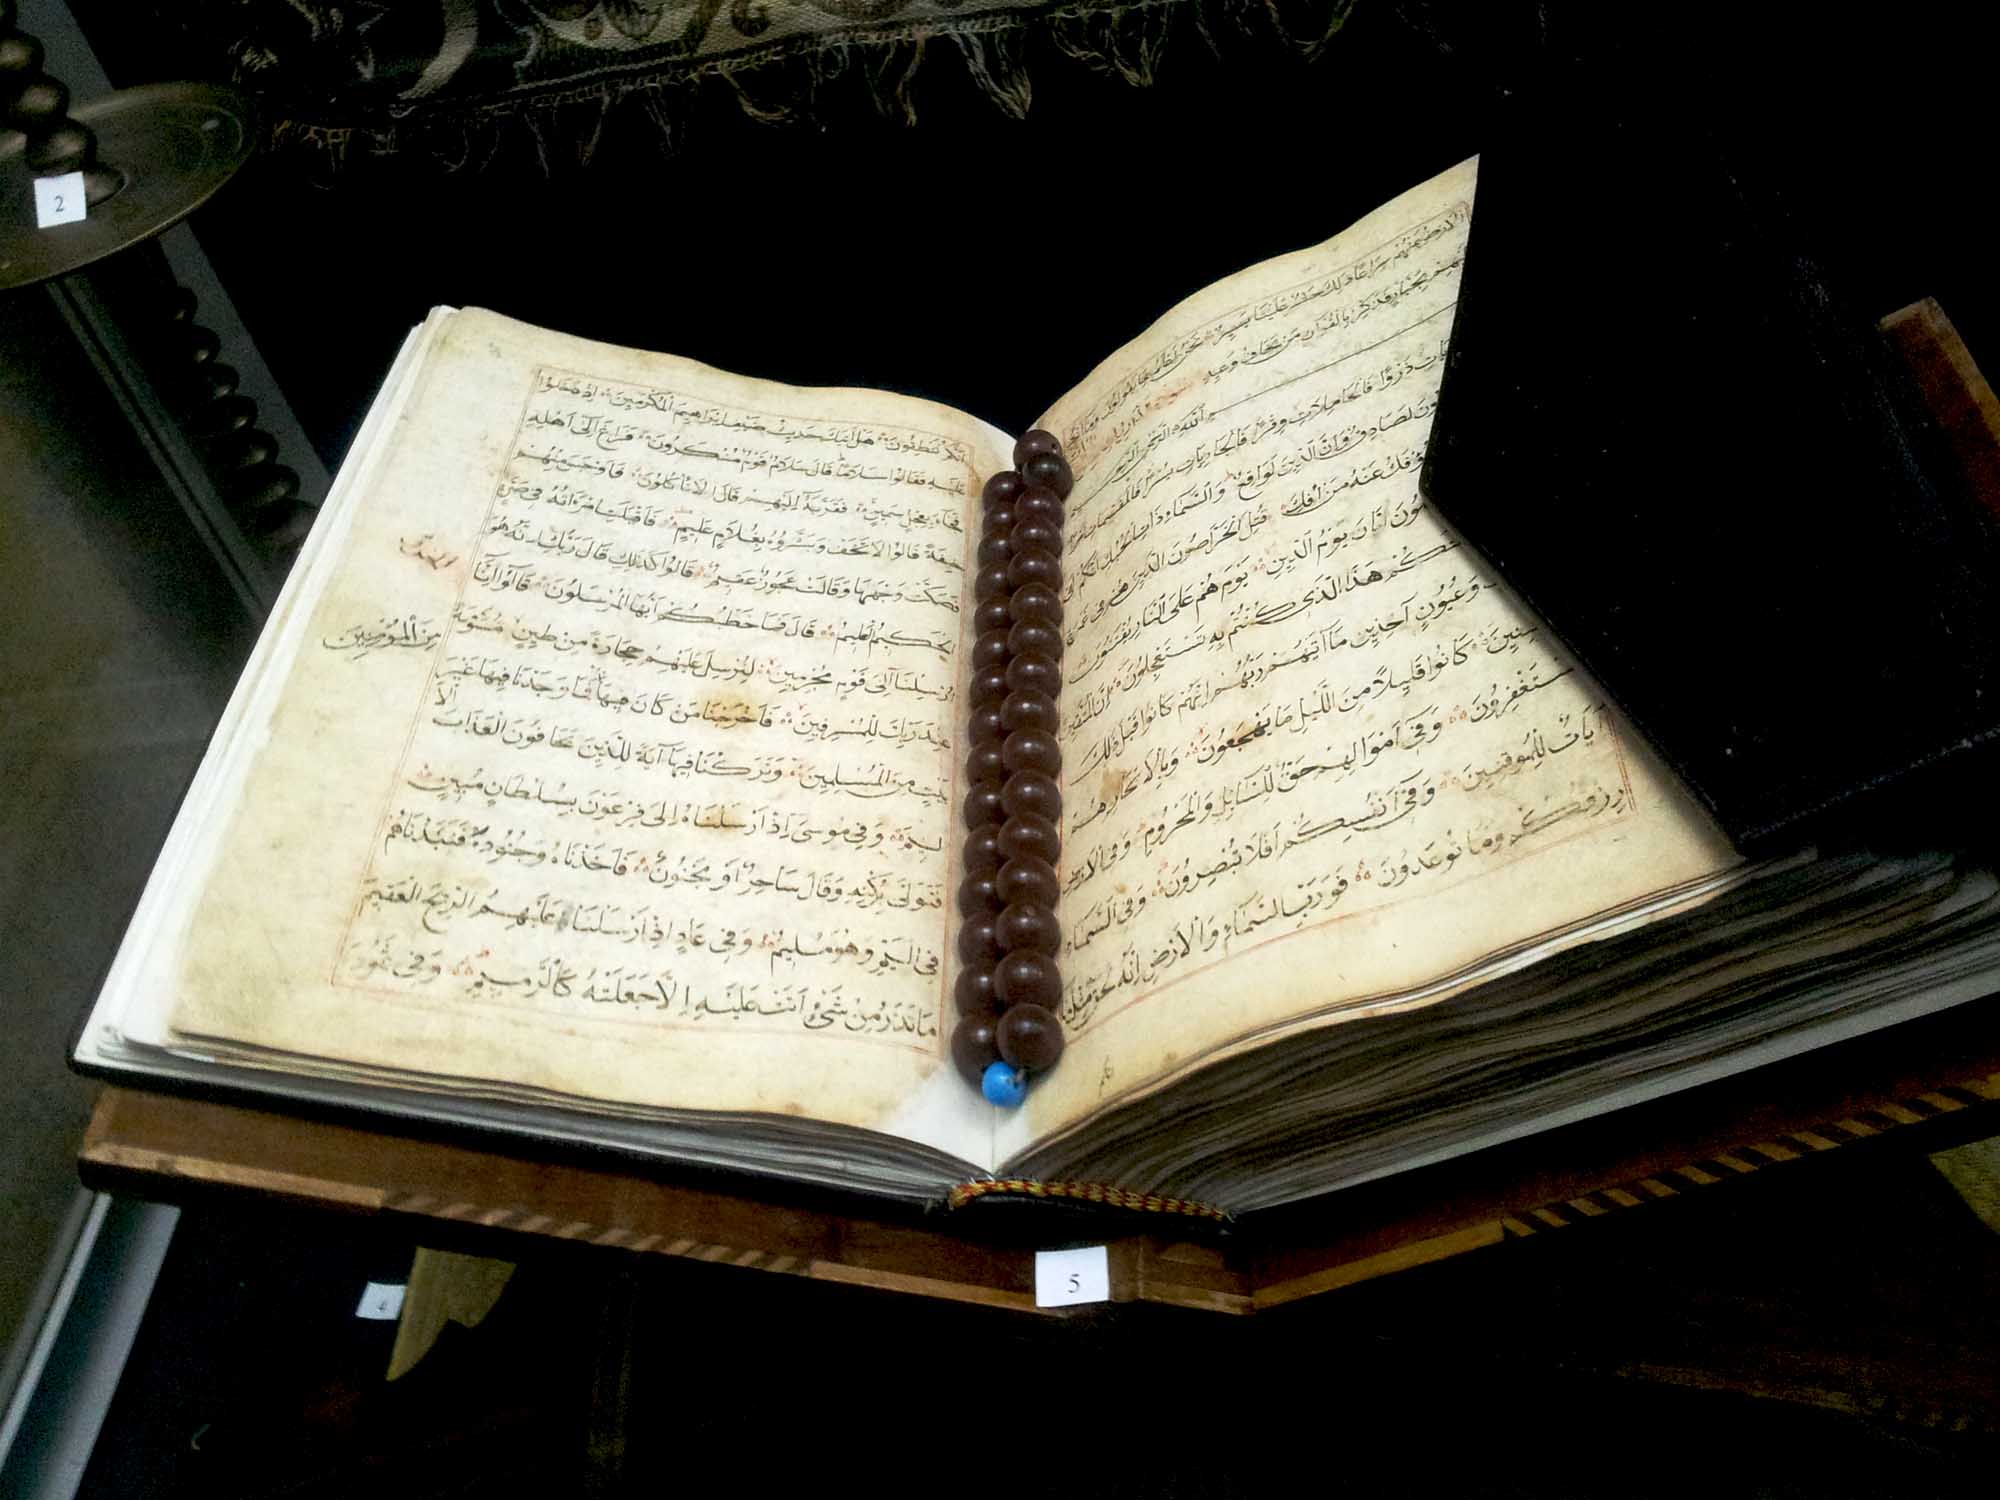 الْاَرْضُ عَنْهُمْ سِرَاعًا ذٰلِكَ حَشْرٌ عَلَيْنَا يَسِيرٌ نَحْنُ اَعْلَمُ بِمَا يَقُولُونَ وَمَا اَنْتَ
عَلَيْهِمْ بِجَبَّارٍ فَذَكِّرْ بِالْقُرْآنِ مَنْ يَخَافُ وَعِيدِ
اللّٰهِ الرَّحْمٰنِ الرَّحِيمِ
ذَرْوًا فَالْحَامِلَاتِ وِقْرًا فَالْجَارِيَاتِ يُسْرًا فَالْمُقَسِّمَاتِ اَمْرًا
لَصَادِقٌ وَاِنَّ الدِّينَ لَوَاقِعٌ وَالسَّمَاءِ ذَاتِ الْحُبُكِ اِنَّكُمْ لَفِى
يُؤْفَكُ عَنْهُ مَنْ اُفِكَ قُتِلَ الْخَرَّاصُونَ الَّذِينَ هُمْ فِى غَمْرَةٍ
اَيَّانَ يَوْمُ الدِّينِ يَوْمَ هُمْ عَلَى النَّارِ يُفْتَنُونَ
هٰذَا الَّذِى كُنْتُمْ بِهِ تَسْتَعْجِلُونَ اِنَّ الْمُتَّقِينَ
وَعُيُونٍ آخِذِينَ مَا آتٰيهُمْ رَبُّهُمْ اِنَّهُمْ كَانُوا قَبْلَ ذٰلِكَ
مُحْسِنِينَ كَانُوا قَلِيلًا مِنَ اللَّيْلِ مَا يَهْجَعُونَ وَبِالْاَسْحَارِ هُمْ
يَسْتَغْفِرُونَ وَفِى اَمْوَالِهِمْ حَقٌّ لِلسَّائِلِ وَالْمَحْرُومِ وَفِى الْاَرْضِ
آيَاتٌ لِلْمُوقِنِينَ وَفِى اَنْفُسِكُمْ اَفَلَا تُبْصِرُونَ وَفِى السَّمَاءِ
رِزْقُكُمْ وَمَا تُوعَدُونَ فَوَرَبِّ السَّمَاءِ وَالْاَرْضِ اِنَّهُ لَحَقٌّ مِثْلَ مَا
اَنَّكُمْ تَنْطِقُونَ هَلْ اَتٰيكَ حَدِيثُ ضَيْفِ اِبْرَاهِيمَ الْمُكْرَمِينَ اِذْ دَخَلُوا
عَلَيْهِ فَقَالُوا سَلَامًا قَالَ سَلَامٌ قَوْمٌ مُنْكَرُونَ فَرَاغَ اِلٰى اَهْلِهِ
فَجَاءَ بِعِجْلٍ سَمِينٍ فَقَرَّبَهُ اِلَيْهِمْ قَالَ اَلَا تَاْكُلُونَ فَاَوْجَسَ مِنْهُمْ
خِيفَةً قَالُوا لَا تَخَفْ وَبَشَّرُوهُ بِغُلَامٍ عَلِيمٍ فَاَقْبَلَتِ امْرَاَتُهُ فِى صَرَّةٍ
فَصَكَّتْ وَجْهَهَا وَقَالَتْ عَجُوزٌ عَقِيمٌ قَالُوا كَذٰلِكِ قَالَ رَبُّكِ اِنَّهُ هُوَ
الْحَكِيمُ الْعَلِيمُ قَالَ فَمَا خَطْبُكُمْ اَيُّهَا الْمُرْسَلُونَ قَالُوا اِنَّا
اُرْسِلْنَا اِلٰى قَوْمٍ مُجْرِمِينَ لِنُرْسِلَ عَلَيْهِمْ حِجَارَةً مِنْ طِينٍ مُسَوَّمَةً
عِنْدَ رَبِّكَ لِلْمُسْرِفِينَ فَاَخْرَجْنَا مَنْ كَانَ فِيهَا فَمَا وَجَدْنَا فِيهَا غَيْرَ
مِنَ الْمُؤْمِنِينَ
بَيْتٍ مِنَ الْمُسْلِمِينَ وَتَرَكْنَا فِيهَا آيَةً لِلَّذِينَ يَخَافُونَ الْعَذَابَ الْاَ
لِيمَ وَفِى مُوسٰى اِذْ اَرْسَلْنَاهُ اِلٰى فِرْعَوْنَ بِسُلْطَانٍ مُبِينٍ
فَتَوَلّٰى بِرُكْنِهِ وَقَالَ سَاحِرٌ اَوْ مَجْنُونٌ فَاَخَذْنَاهُ وَجُنُودَهُ فَنَبَذْنَاهُمْ
فِى الْيَمِّ وَهُوَ مُلِيمٌ وَفِى عَادٍ اِذْ اَرْسَلْنَا عَلَيْهِمُ الرِّيحَ الْعَقِيمَ
مَا تَذَرُ مِنْ شَىْءٍ اَتَتْ عَلَيْهِ اِلَّا جَعَلَتْهُ كَالرَّمِيمِ وَفِى ثَمُودَ
2
4
5